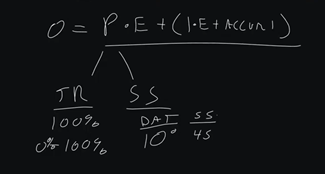 O = P·E + (I·E + ACCUM I)
TR SS
100% DAT SS
0% 100% 10° 45